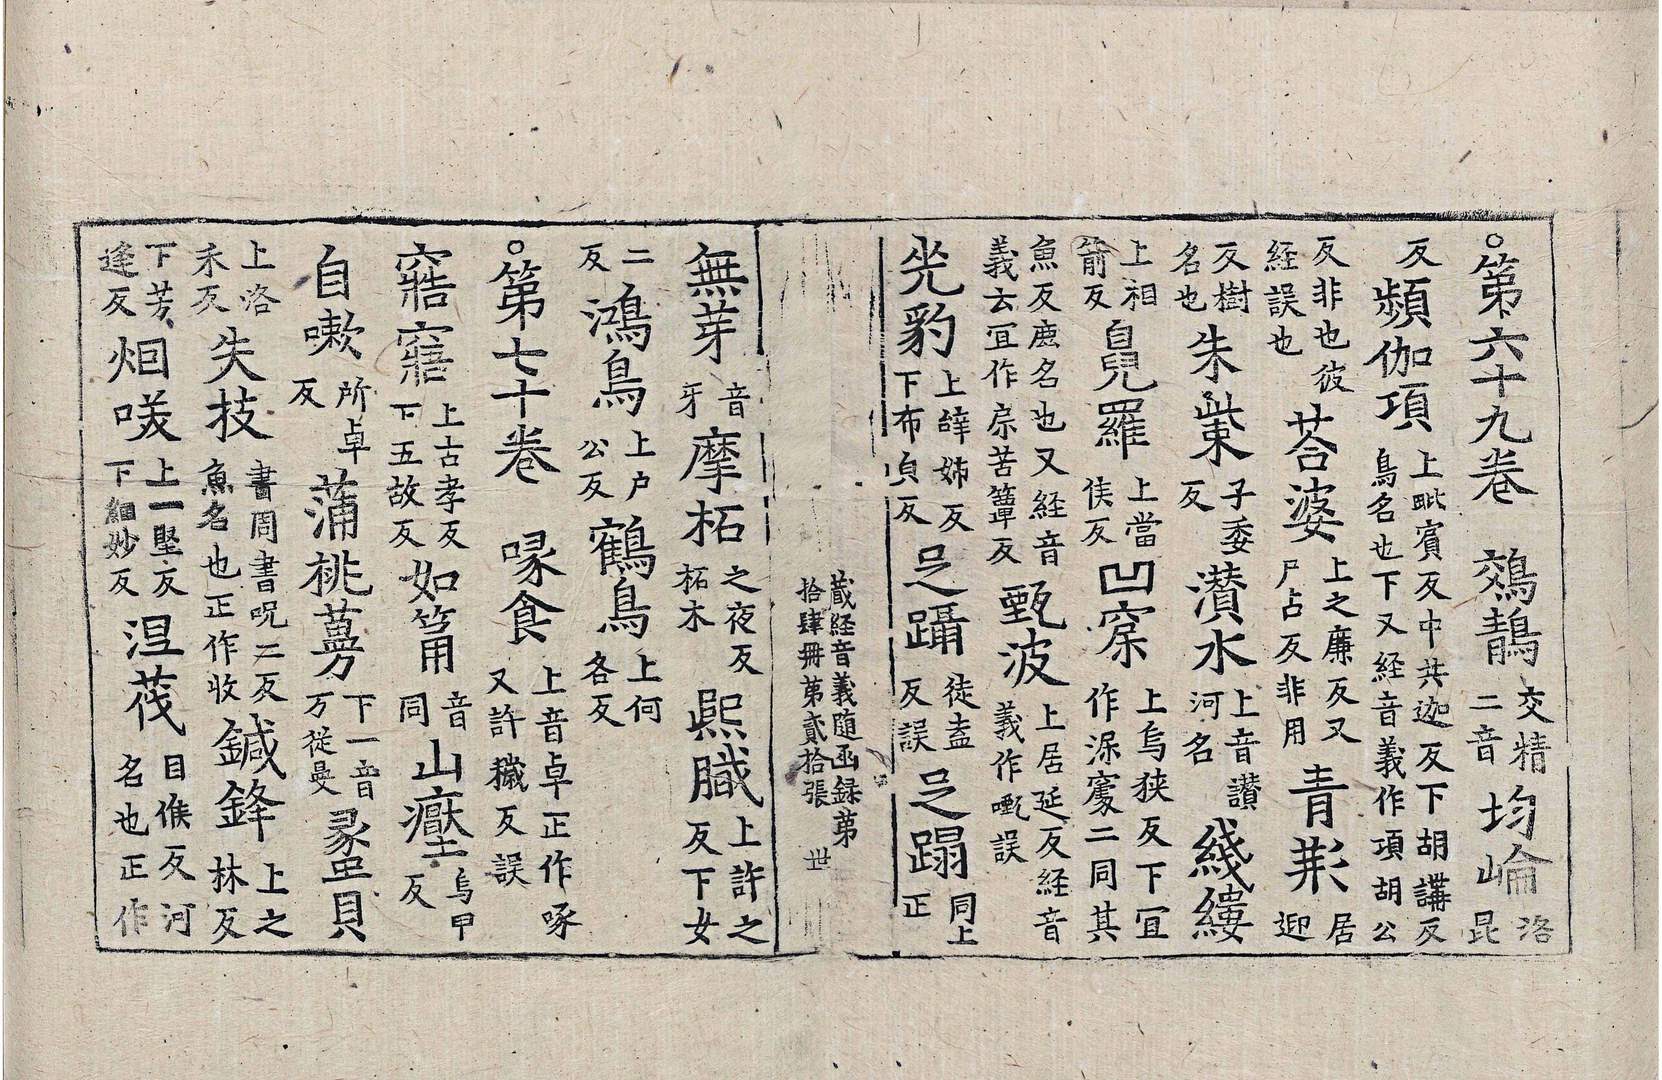 ○第六十九卷　鵁鶄交精二音均崘洛昆
反頻伽項上毗賔反中共迦反下胡講反鳥名也下又経音義作項胡公
反非也彼経誤也荅婆上之廉反又尸占反非用青居迎
反樹名也朱子委反灒水上音讃河名綫縷
上相箭反羅上當侯反凹上烏狭反下冝作二同其
魚反鹿名也又経音義云冝作苦簞反甄波上居延反経音義作誤
豹上辝姊反下布皃反躡徒盍反誤蹋同上正
藏経音義随函録苐
拾肆冊苐貳拾張　丗
無芽音牙摩柘之夜反柘木熈膱上許之反下女
二反鴻鳥上户公反鶴鳥上何各反
○第七十卷　喙食上音卓正作啄又許穢反誤
寤上古孝反下五故反如筩音同山壓烏甲反
自嗽所卓反蒲桃下一音万従曼貝
上洛禾反失技書周書呪二反魚名也正作收鍼鋒上之林反
下芳逄反烟㗛上一堅反下細妙反茂目侯反河名也正作